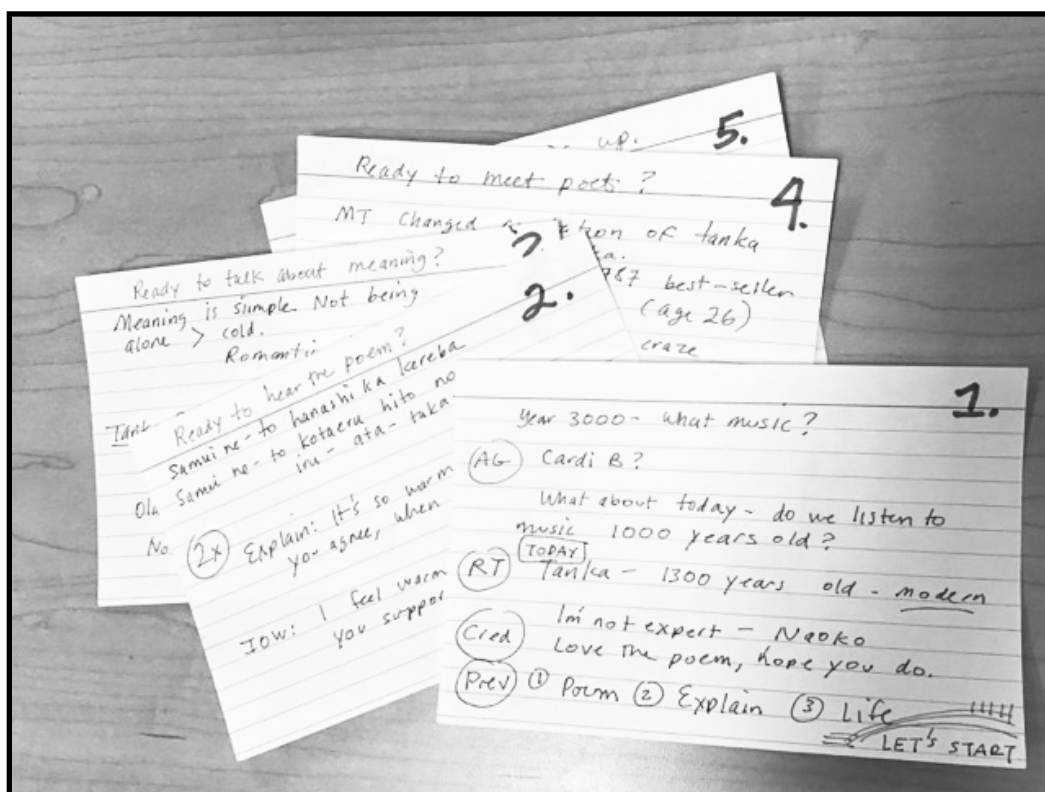 up.
5.
Ready to meet poets?
4.
MT Changed of tanka
1987 best-seller
(age 26)
craze
Ready to talk about meaning?
Meaning is simple. Not being
alone > cold.
Romanti
Ola
No.
2.
Ready to hear the poem?
Samui ne-to hanashi ka kereba
Samui ne-to kotaeru hito no
iru - ata-taka
2x Explain: It's so warm
you agree, when
IOW: I feel warm
you suppor
1.
Year 3000 - what music?
AG Cardi B?
What about today - do we listen to
music 1000 years old?
TODAY
RT Tanka - 1300 years old - modern
Cred I'm not expert - Naoko
Love the poem, hope you do.
Prev ① Poem ② Explain ③ Life
LET'S START